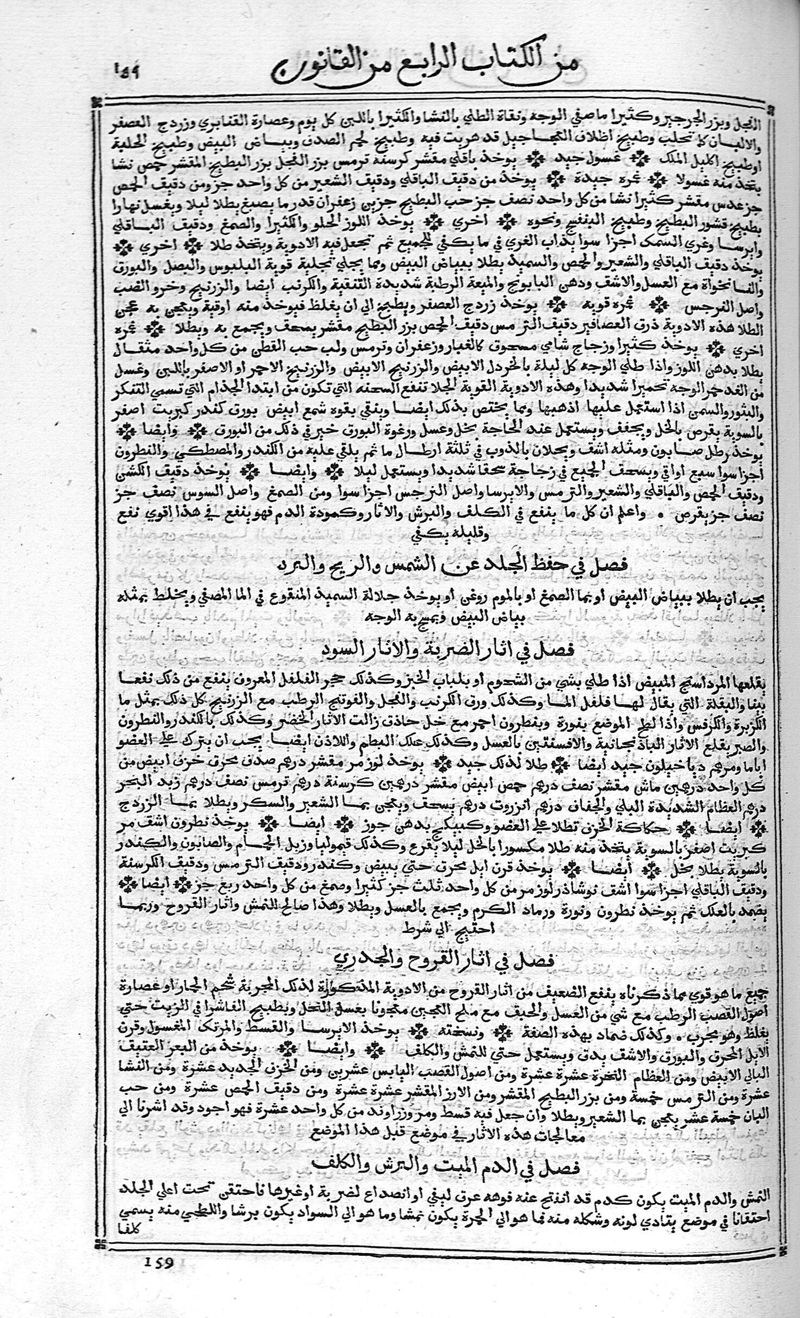 من الكتاب الرابع من القانون
١٥٩
الفجل وبزر الجرجير وكثيرا ما صفي الوجه ونقاه الطلي بالنشا والكثيرا باللبن كل يوم وعصارة القنابري وزردج العصفر
والالبان كما تحلب وطبيخ اظلاف العجاجيل قد هريت فيه وطبيخ لحم الصدف وبياض البيض وطبيخ الحلبة
او طبيخ اكليل الملك غسول جيد يوخذ باقلي مقشر كرسنة ترمس بزر الفجل بزر البطيخ المقشر حمص نشا
يتخذ منه غسولا غمره جيدة يوخذ من دقيق الباقلي ودقيق الشعير من كل واحد جز ومن دقيق الحمص
جز عدس مقشر كثيرا نشا من كل واحد نصف جز حب البطيخ جزين زعفران قدر ما يصبغ يطلا ليلا ويغسل نهارا
بطبيخ قشور البطيخ وطبيخ البنفسج ونحوه اخري يوخذ اللوز الحلو والكثيرا والصمغ ودقيق الباقلي
وايرسا وغري السمك اجزا سوا يذاب الغري في ما يكفي للجميع ثم تجعل فيه الادوية ويتخذ طلا اخري
يوخذ دقيق الباقلي والشعير والحمص والسميد يطلا ببياض البيض ومما يجلي تجلية قوية البلبوس والبصل والبورق
والنانخواة مع العسل والاشق ودهن البابونج والميعة الرطبة شديدة التنقية والكرنب ايضا والزرنيخ وخرو الضب
واصل النرجس غمره قوية يوخذ زردج العصفر ويطبخ الي ان يغلظ فيوخذ منه اوقية ويعجن به عجن
الطلا هذه الادوية ذرق العصافير دقيق الترمس دقيق الحمص بزر البطيخ مقشر يسحق ويجمع به ويطلا غمره
اخري يوخذ كثيرا وزجاج شامي مسحوق كالغبار وزعفران وترمس ولب حب القطن من كل واحد مثقال
يطلا بدهن اللوز واذا طلي الوجه كل ليلة بالخردل الابيض والزرنيخ الابيض والزرنيخ الاحمر او الاصفر باللبن وغسل
من الغد حمر الوجه تحميرا شديدا وهذه الادوية القوية الجلا تنفع السحنه التي تكون من ابتدا الجذام التي تسمي التنكر
والبثور والسمن اذا استعمل عليها اذهبها ومما يختص بذلك ايضا وينقي بقوه شمع ابيض بورق كندر كبريت اصفر
بالسوية يقرص بالخل ويجفف ويستعمل عند الحاجة بخل وعسل ورغوة البورق خير في ذلك من البورق وايضا
يوخذ رطل صابون ومثله اشق ويحلان بالذوب في ثلثة ارطال ما ثم يلقي عليه من الكندر والمصطكي والنطرون
اجزا سوا سبع اواقي ويسحق الجميع في زجاجة سحقا شديدا ويستعمل ليلا وايضا يوخذ دقيق الكشن
ودقيق الحمص والباقلي والشعير والترمس والايرسا واصل النرجس اجزا سوا ومن الصمغ واصل السوس نصف جز
نصف جز يقرص . واعلم ان كل ما ينفع في الكلف والبرش والاثار وكمودة الدم فهو ينفع في هذا اقوي نفع
وقليله يكفي
فصل في حفظ الجلد عن الشمس والريح والبرد
يجب ان يطلا ببياض البيض او بما الصمغ او بالموم روغن او يوخذ حلالة السميد المنقوع في الما المصفي ويخلط بمثله
بياض البيض ويمسح به الوجه
فصل في اثار الضربة والاثار السود
يقلعها المرداسنج المبيض اذا طلي بشي من الشحوم او بلباب الخبز وكذلك حجر الفلفل المعروف ينفع من ذلك نفعا
بينا والبقلة التي يقال لها فلفل الما وكذلك ورق الكرنب والفجل والفوتنج الرطب مع الزرنيخ كل ذلك يمثل ما
الكزبرة والكرفس واذا لطخ الموضع بنورة وبنطرون احمر مع خل حاذق زالت الاثار الخضر وكذلك بالكندر والنطرون
والصبر يقلع الاثار الباذنجانية والافسنتين بالعسل وكذلك علك البطم واللاذن ايضا يجب ان يترك علي العضو
اياما ومرهم دياخيلون جيد ايضا طلا لذلك جيد يوخذ لوز مر مقشر درهم صدف محرق خزف ابيض من
كل واحد درهمين ماش مقشر نصف درهم حمص ابيض مقشر درهمين كرسنة درهم ترمس نصف درهم زبد البحر
درهم العظام الشديدة البلي والجفاف درهم انزروت درهم يسحق ويعجن بما الشعير والسكر ويطلا بما الزردج
ايضا حكاكة الخزف تطلا علي العضو وكبيكج بدهن جوز ايضا يوخذ نطرون اشق مر
كبريت اصفر بالسوية يتخذ منه طلا مكسورا بالخل ليلا يقرح وكذلك قيموليا وزبل الحمام والصابون والكندر
بالسوية يطلا بخل ايضا يوخذ قرن ايل محرق حتي يبيض وكندر ودقيق الترمس ودقيق الكرسنة
ودقيق الباقلي اجزا سوا اشق نوشاذر لوز مر من كل واحد ثلث جز كثيرا وصمغ من كل واحد ربع جز ايضا
يضمد بالعلك ثم يوخذ نطرون ونورة ورماد الكرم ويجمع بالعسل ويطلا وهذا صالح للنمش واثار القروح وربما
احتيج الي شرط
فصل في اثار القروح والجدري
جميع ما هو قوي مما ذكرناه ينفع الضعيف من اثار القروح من الادوية المذكورة لذلك المجربة شحم الحمار او عصارة
اصول القصب الرطب مع شي من العسل والحيف مع ملح العجين معجونا بعسل النحل وبطبيخ الفاشرا في الزيت حتي
يغلظ وهو مجرب . وكذلك ضماد بهذه الصفة ونسخته يوخذ الايرسا والقسط والمرتك المغسول وقرن
الايل المحرق والبورق والاشق يدق ويستعمل حتي للنمش والكلف وايضا يوخذ من البعر العتيق
البالي الابيض ومن العظام النخرة عشرة عشرة ومن اصول القصب اليابس عشرين ومن الخزف الجديد عشرة ومن النشا
عشرة ومن الترمس خمسة ومن بزر البطيخ المقشر ومن الارز المقشر عشرة عشرة ومن دقيق الحمص عشرة ومن حب
البان خمسة عشر يعجن بما الشعير ويطلا وان جعل فيه قسط ومر وزراوند من كل واحد عشرة فهو اجود وقد اشرنا الي
معالجات هذه الاثار في موضع قبل هذا الموضع
فصل في الدم الميت والبرش والكلف
النمش والدم الميت يكون كدم قد انفتح عنه فوهه عرق ليفي او انصداع لضربة او غيرها فاحتقن تحت اعلي الجلد
احتقانا في موضع يتادي لونه وشكله منه فما هو الي الحمرة يكون نمشا وما هو الي السواد يكون برشا واللطخي منه يسمي
كلفا
159